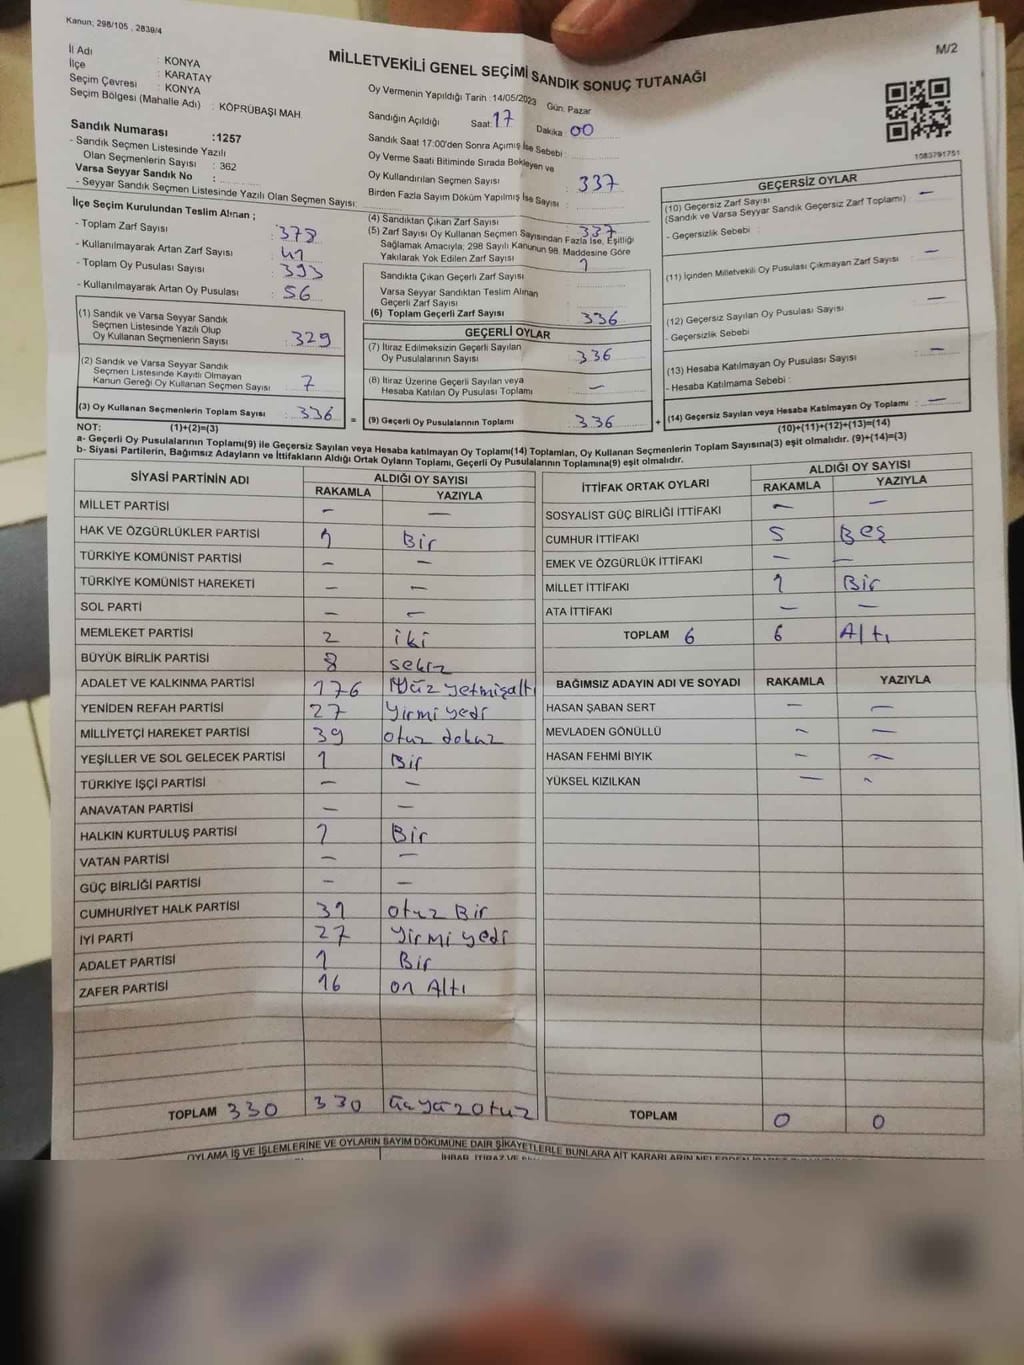 Kanun; 298/105 , 2839/4
M/2
MİLLETVEKİLİ GENEL SEÇİMİ SANDIK SONUÇ TUTANAĞI
İl Adı : KONYA
İlçe : KARATAY
Seçim Çevresi : KONYA
Seçim Bölgesi (Mahalle Adı) : KÖPRÜBAŞI MAH.
Sandık Numarası :1257
- Sandık Seçmen Listesinde Yazılı
Olan Seçmenlerin Sayısı : 362
Varsa Seyyar Sandık No :
- Seyyar Sandık Seçmen Listesinde Yazılı Olan Seçmen Sayısı:
İlçe Seçim Kurulundan Teslim Alınan ;
- Toplam Zarf Sayısı : 378
- Kullanılmayarak Artan Zarf Sayısı : 41
- Toplam Oy Pusulası Sayısı : 393
- Kullanılmayarak Artan Oy Pusulası : 56
(1) Sandık ve Varsa Seyyar Sandık
Seçmen Listesinde Yazılı Olup
Oy Kullanan Seçmenlerin Sayısı : 329
(2) Sandık ve Varsa Seyyar Sandık
Seçmen Listesinde Kayıtlı Olmayan
Kanun Gereği Oy Kullanan Seçmen Sayısı : 7
(3) Oy Kullanan Seçmenlerin Toplam Sayısı : 336
Oy Vermenin Yapıldığı Tarih : 14/05/2023 Gün: Pazar
Sandığın Açıldığı Saat: 17 Dakika : 00
Sandık Saat 17:00'den Sonra Açımış İse Sebebi :
Oy Verme Saati Bitiminde Sırada Bekleyen ve
Oy Kullandırılan Seçmen Sayısı : 337
Birden Fazla Sayım Döküm Yapılmış İse Sayısı :
(4) Sandıktan Çıkan Zarf Sayısı : 337
(5) Zarf Sayısı Oy Kullanan Seçmen Sayısından Fazla İse, Eşitliği
Sağlamak Amacıyla; 298 Sayılı Kanunun 98. Maddesine Göre
Yakılarak Yok Edilen Zarf Sayısı : 1
Sandıkta Çıkan Geçerli Zarf Sayısı :
Varsa Seyyar Sandıktan Teslim Alınan
Geçerli Zarf Sayısı :
(6) Toplam Geçerli Zarf Sayısı : 336
GEÇERLİ OYLAR
(7) İtiraz Edilmeksizin Geçerli Sayılan
Oy Pusulalarının Sayısı : 336
(8) İtiraz Üzerine Geçerli Sayılan veya
Hesaba Katılan Oy Pusulası Toplamı : —
= (9) Geçerli Oy Pusulalarının Toplamı : 336 +
1083791751
GEÇERSİZ OYLAR
(10) Geçersiz Zarf Sayısı : —
(Sandık ve Varsa Seyyar Sandık Geçersiz Zarf Toplamı)
- Geçersizlik Sebebi :
(11) İçinden Milletvekili Oy Pusulası Çıkmayan Zarf Sayısı : —
(12) Geçersiz Sayılan Oy Pusulası Sayısı : —
- Geçersizlik Sebebi :
(13) Hesaba Katılmayan Oy Pusulası Sayısı : —
- Hesaba Katılmama Sebebi :
(14) Geçersiz Sayılan veya Hesaba Katılmayan Oy Toplamı : —
NOT: (1)+(2)=(3) (10)+(11)+(12)+(13)=(14)
a- Geçerli Oy Pusulalarının Toplamı(9) ile Geçersiz Sayılan veya Hesaba katılmayan Oy Toplamı(14) Toplamları, Oy Kullanan Seçmenlerin Toplam Sayısına(3) eşit olmalıdır. (9)+(14)=(3)
b- Siyasi Partilerin, Bağımsız Adayların ve İttifakların Aldığı Ortak Oyların Toplamı, Geçerli Oy Pusulalarının Toplamına(9) eşit olmalıdır.
SİYASİ PARTİNİN ADI ALDIĞI OY SAYISI
RAKAMLA YAZIYLA
MİLLET PARTİSİ — —
HAK VE ÖZGÜRLÜKLER PARTİSİ 1 Bir
TÜRKİYE KOMÜNİST PARTİSİ — —
TÜRKİYE KOMÜNİST HAREKETİ — —
SOL PARTİ — —
MEMLEKET PARTİSİ 2 iki
BÜYÜK BİRLİK PARTİSİ 8 sekiz
ADALET VE KALKINMA PARTİSİ 176 Yüz yetmişaltı
YENİDEN REFAH PARTİSİ 27 Yirmi yedi
MİLLİYETÇİ HAREKET PARTİSİ 39 otuz dokuz
YEŞİLLER VE SOL GELECEK PARTİSİ 1 Bir
TÜRKİYE İŞÇİ PARTİSİ — —
ANAVATAN PARTİSİ — —
HALKIN KURTULUŞ PARTİSİ 1 Bir
VATAN PARTİSİ — —
GÜÇ BİRLİĞİ PARTİSİ — —
CUMHURİYET HALK PARTİSİ 31 otuz Bir
İYİ PARTİ 27 Yirmi yedi
ADALET PARTİSİ 1 Bir
ZAFER PARTİSİ 16 on Altı
TOPLAM 330 330 üçyüzotuz
İTTİFAK ORTAK OYLARI ALDIĞI OY SAYISI
RAKAMLA YAZIYLA
SOSYALİST GÜÇ BİRLİĞİ İTTİFAKI — —
CUMHUR İTTİFAKI 5 Beş
EMEK VE ÖZGÜRLÜK İTTİFAKI — —
MİLLET İTTİFAKI 1 Bir
ATA İTTİFAKI — —
TOPLAM 6 6 Altı
BAĞIMSIZ ADAYIN ADI VE SOYADI RAKAMLA YAZIYLA
HASAN ŞABAN SERT — —
MEVLADEN GÖNÜLLÜ — —
HASAN FEHMİ BIYIK — —
YÜKSEL KIZILKAN — —
TOPLAM 0 0
OYLAMA İŞ VE İŞLEMLERİNE VE OYLARIN SAYIM DÖKÜMÜNE DAİR ŞİKAYETLERLE BUNLARA AİT KARARLARIN